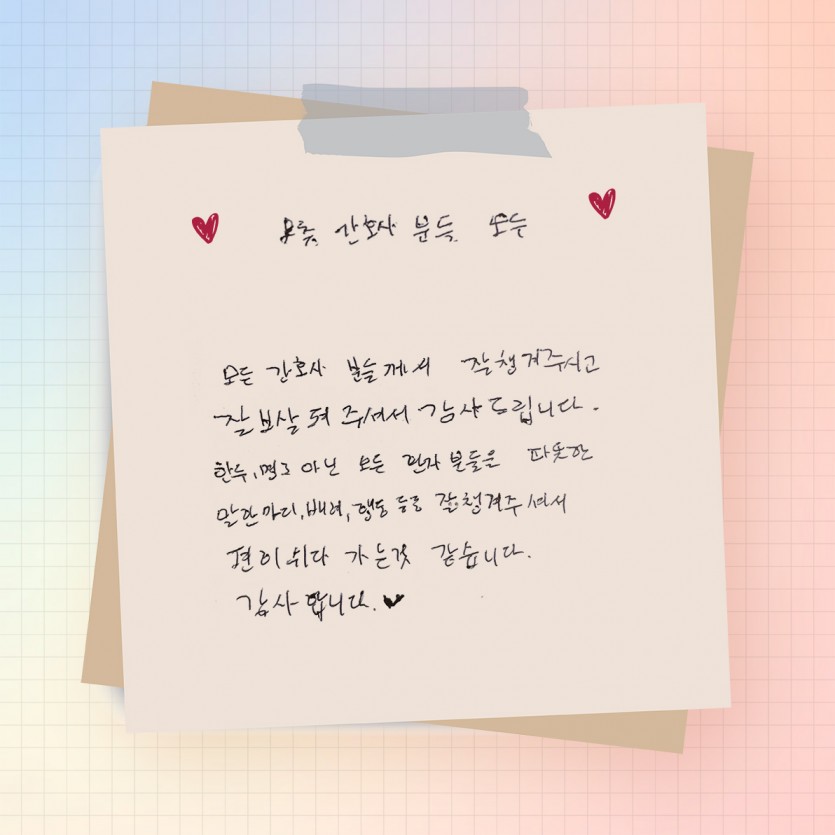 간호사 분들 모두
모든 간호사 분들께서 잘챙겨주시고
잘보살펴 주셔서 감사드립니다.
한두,명도 아닌 모든 환자 분들은 따뜻한
말한마디,배려,행동 등로 잘챙겨주셔서
편이쉬다 가는것 같습니다.
감사합니다.